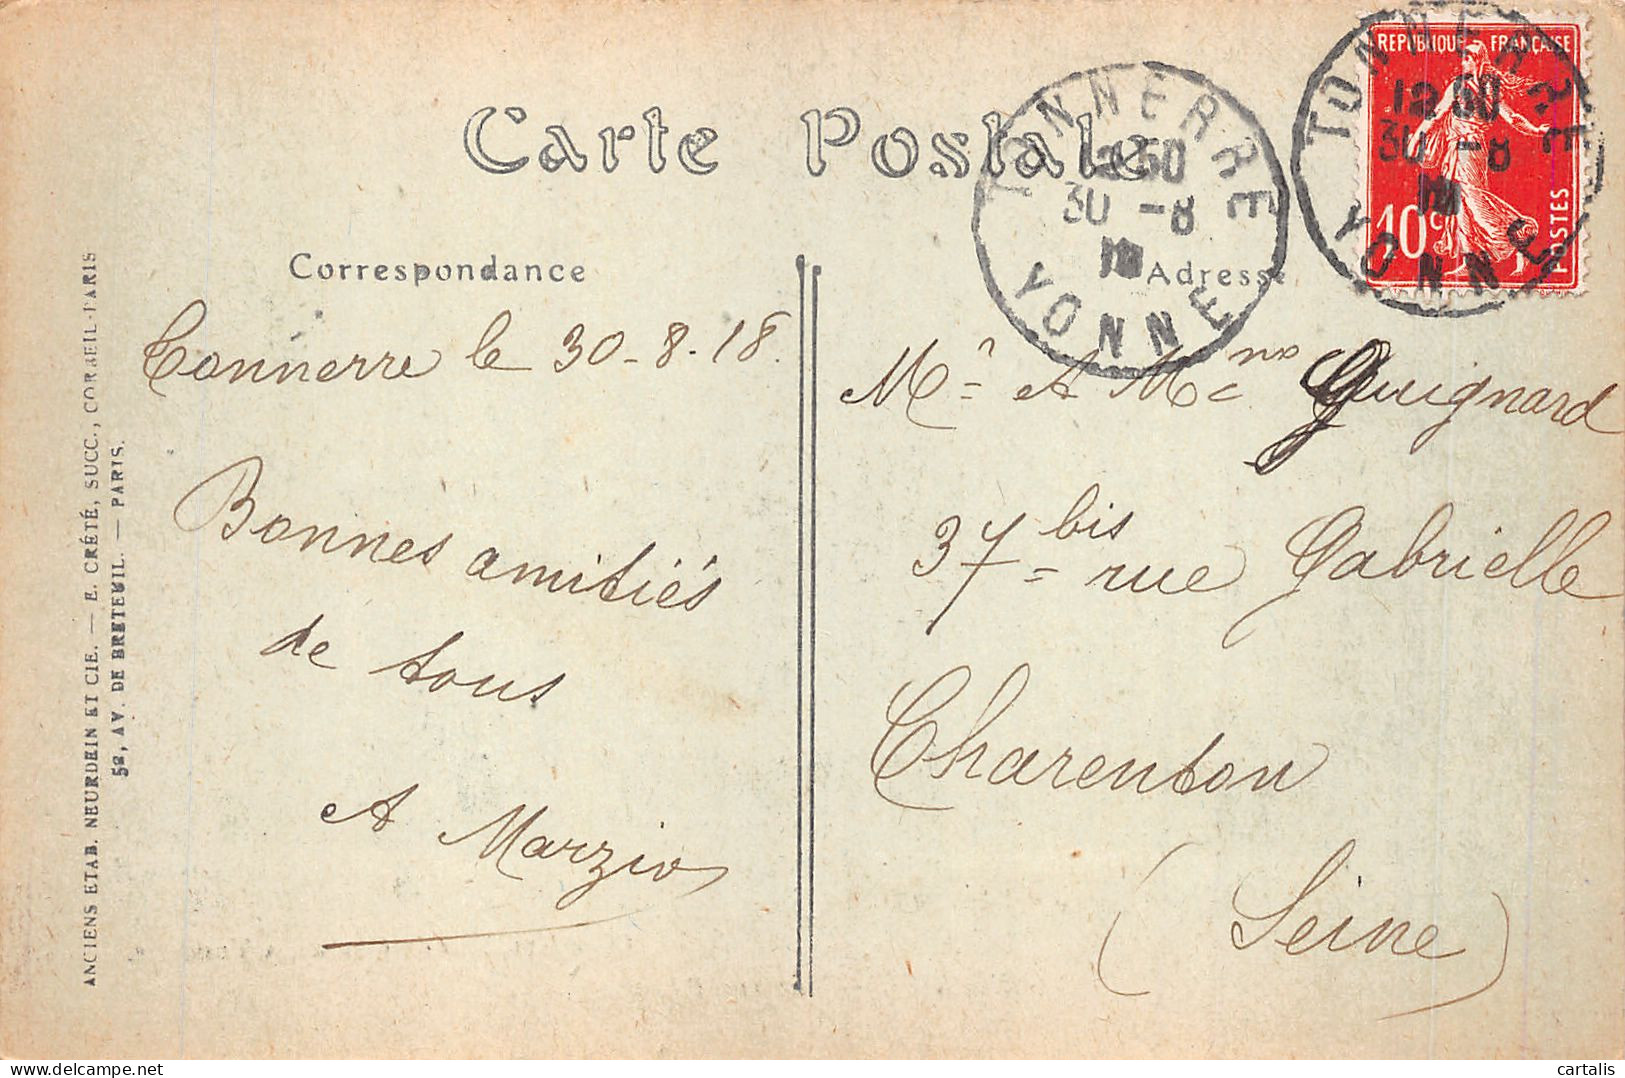 Carte Postale
Correspondance
Adresse
Tonnerre le 30-8-18.
Bonnes amitiés
de tous
A Marzio
Mr et Mme Guignard
37 bis rue Gabrielle
Charenton
(Seine)
ANCIENS ETAB. NEURDEIN ET CIE. — E. CRÉTÉ, SUCC., CORBEIL-PARIS
52, AV. DE BRETEUIL. — PARIS.
TONNERRE
30 -8
YONNE
REPUBLIQUE FRANÇAISE
10c
POSTES
TONNERRE
30 -8
YONNE
delcampe.net
cartalis